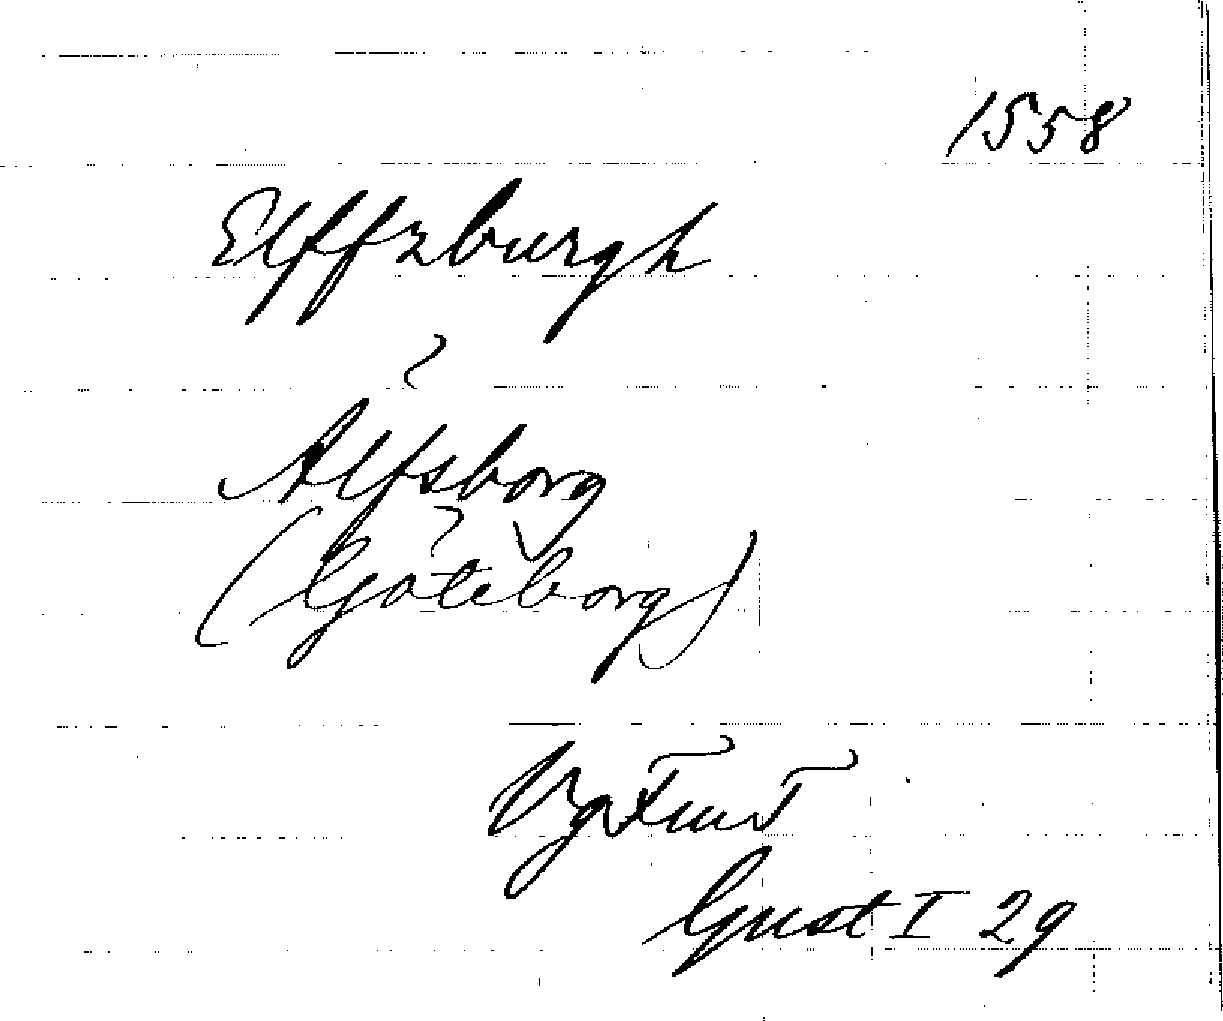 1558
Elffzburgh
Älfsborg
(Göteborg)
VgFmT
Gust I 29